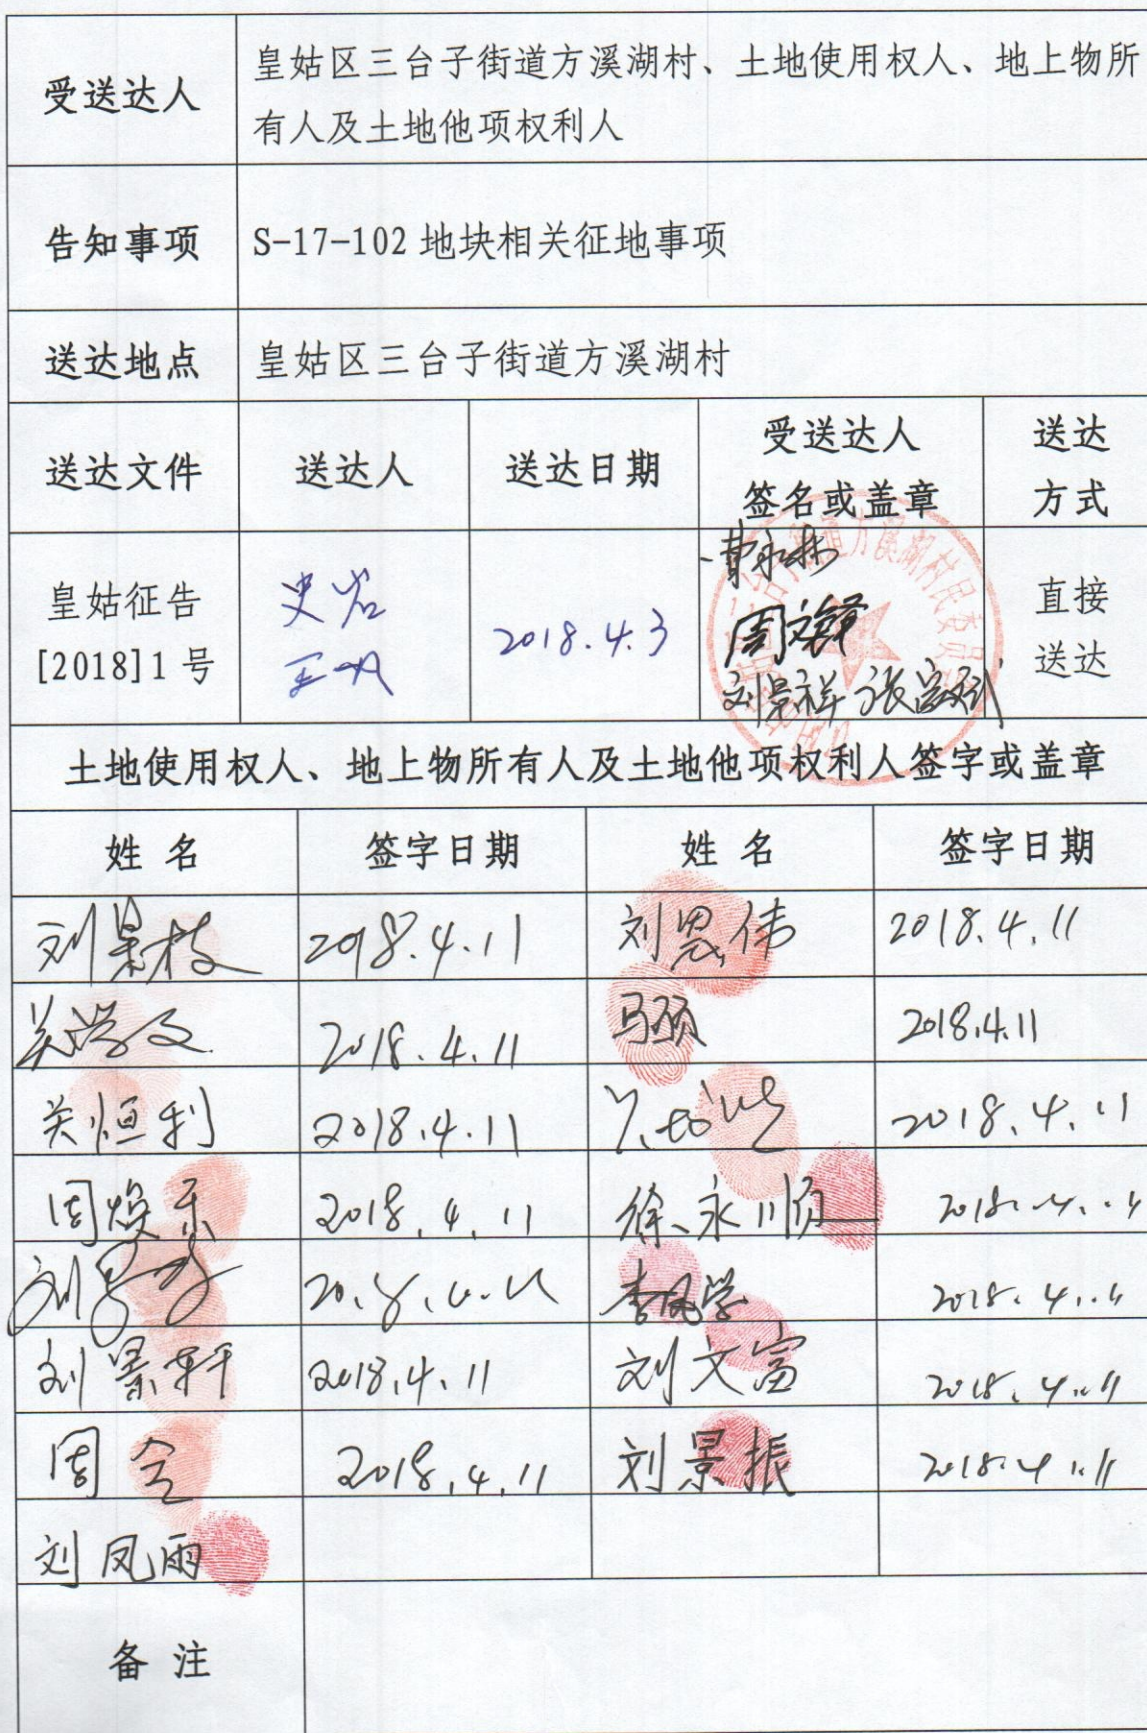 受送达人
皇姑区三台子街道方溪湖村、土地使用权人、地上物所
有人及土地他项权利人
告知事项
S-17-102 地块相关征地事项
送达地点
皇姑区三台子街道方溪湖村
送达文件 送达人 送达日期 受送达人 签名或盖章 送达 方式
皇姑征告
[2018]1 号
史岩
2018.4.3
刘景祥
直接
送达
土地使用权人、地上物所有人及土地他项权利人签字或盖章
姓 名 签字日期 姓 名 签字日期
刘景枝 2018.4.11 刘恩伟 2018.4.11
关学文 2018.4.11 马硕 2018.4.11
关恒利 2018.4.11 2018.4.11
周焕乐 2018.4.11 徐永顺 2018.4.11
2018.4.11 李凤学 2018.4.11
刘景轩 2018.4.11 刘文富 2018.4.11
周全 2018.4.11 刘景振 2018.4.11
刘凤雨
备 注